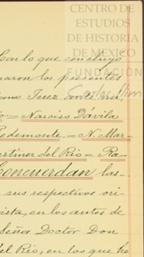 CENTRO DE
ESTUDIOS
DE HISTORIA
DE MEXICO
FUNDACIÓN
Con lo que concluyó
maron los presentes
Perez
Narciso Dávila
Redemonte — N. Mar
artinez del Rio — Ra
Concuerdan las
sus respectivos ori
vista, en los autos de
Señor Doctor Don
del Rio, en los que